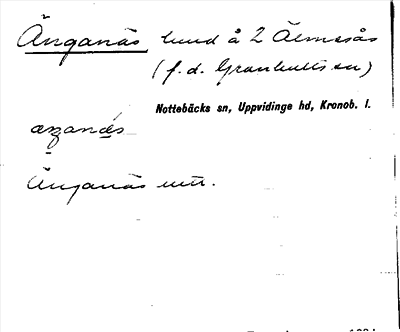 Änganäs lund å 2 Älmesås
(f.d. Granhults sn)
Nottebäcks sn, Uppvidinge hd, Kronob. l.
Änganäs